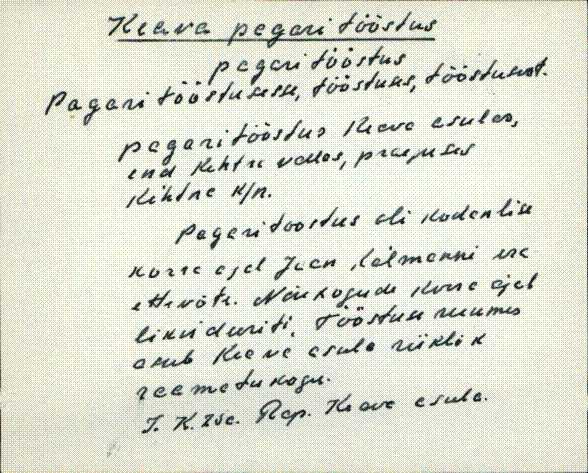 Keava pagaritööstus
pagaritööstus
Pagaritööstusesse, tööstuses, tööstusest.
pagaritööstus Keava asulas,
end Kehtna vallas, praeguses
Kehtna k/n.
Pagaritööstus oli kodanlise
korra ajal Jaan Kälmanni era
ettevõte. Nõukogude korra ajal
likvideeriti. Tööstuse ruumes
asub Keava asula riiklik
raamatukogu.
J. K. Rap. Keava asula.